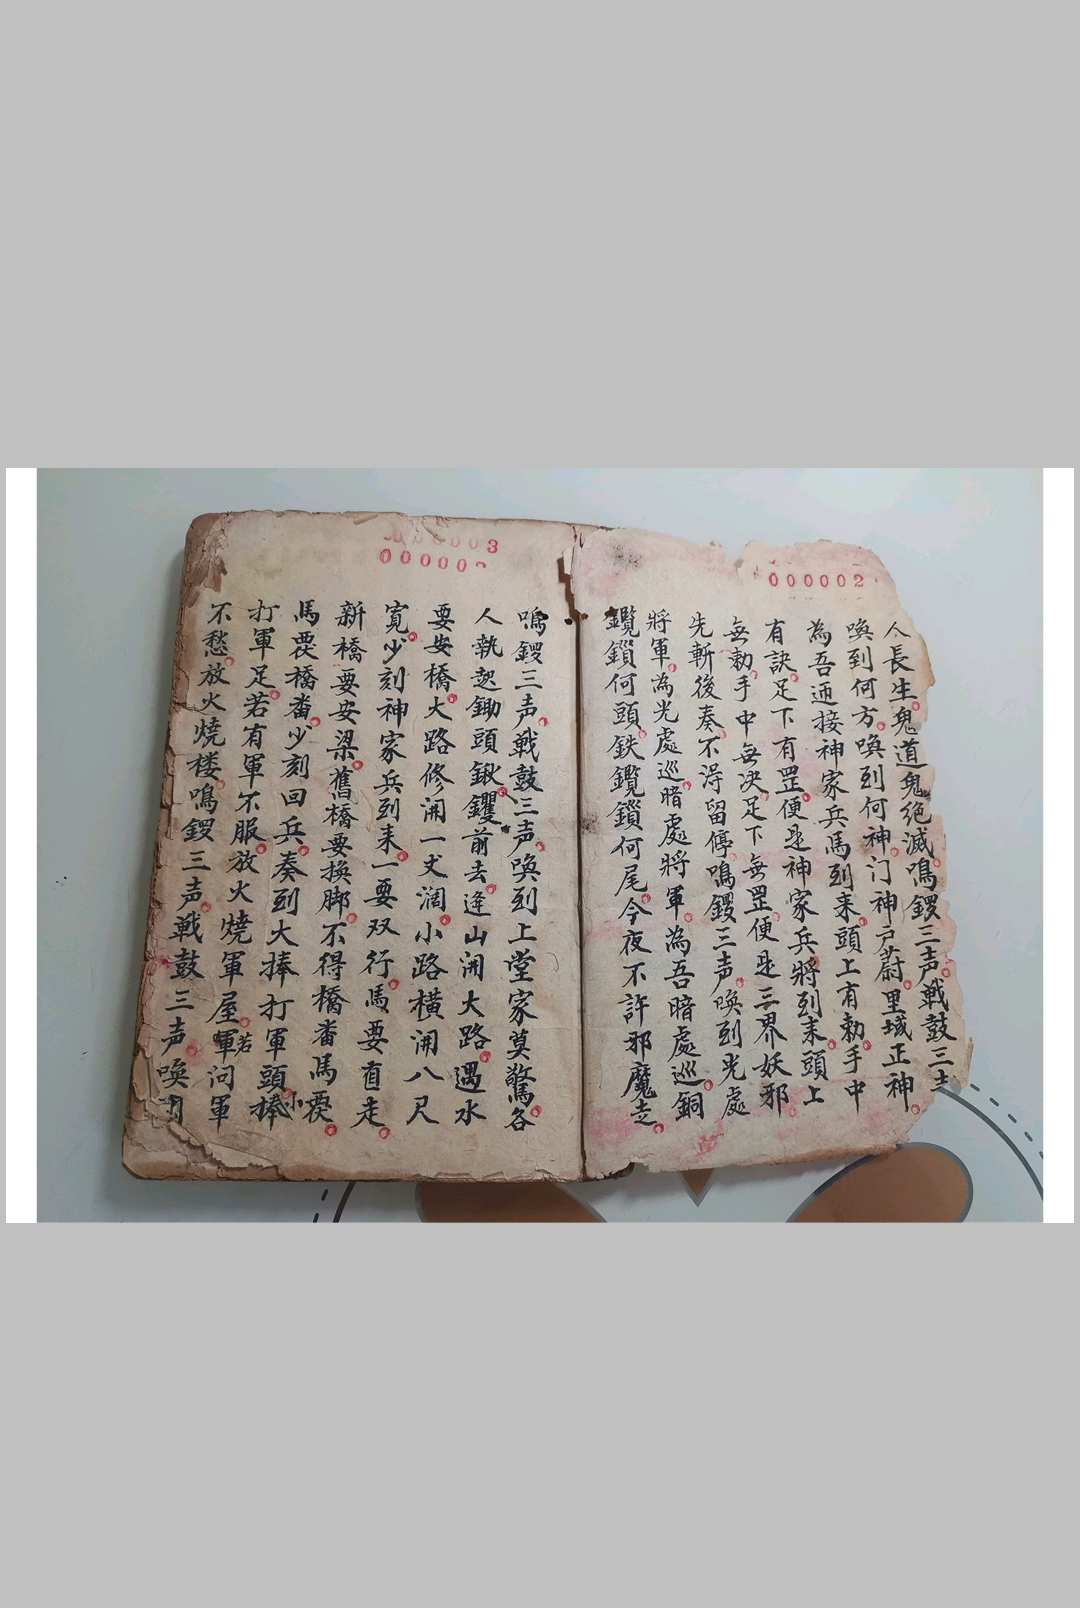 000002
人長生鬼道鬼絕滅鳴鑼三声戦鼓三
喚到何方喚到何神门神户蔚里域正神
為吾迊接神家兵馬到来頭上有勅手中
有訣足下有罡便是神家兵將到来頭上
無勅手中無决足下無罡便是三界妖邪
先斬後奏不淂留停鳴鑼三声喚到光處
將軍為光處巡暗處將軍為吾暗處巡銅
鑬鎖何頭鉄鑬鎖何尾今夜不許邪魔走
000003
鳴鑼三声戦鼓三声喚到上堂家莫驚各
人執起鋤頭鍬钁前去逢山開大路遇水
要安橋大路修開一丈濶小路橫開八尺
寛少刻神家兵到来一要双行馬要自走
新橋要安梁舊橋要换脚不得橋畨馬
馬畏橋畨少刻回兵奏到大捧打軍頭小捧
打軍足若有軍不服放火燒軍屋若軍问軍
不愁放火燒楼鳴鑼三声戦鼓三声喚